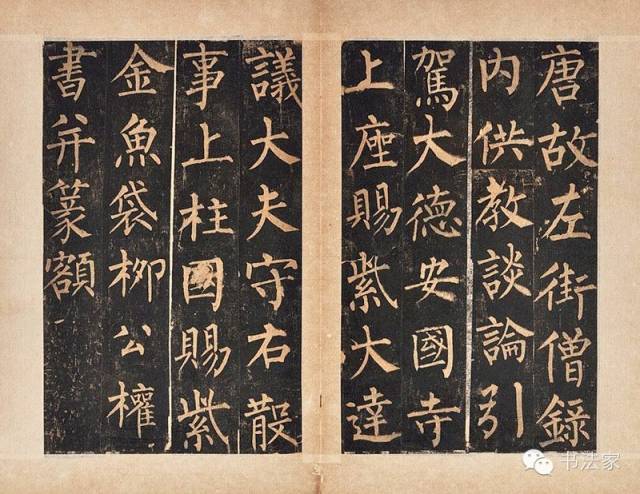 唐故左街僧錄
内供教談論引
駕大德安國寺
上座賜紫大達
議大夫守右散
事上柱國賜紫
金魚袋柳公權
書并篆額
书法家